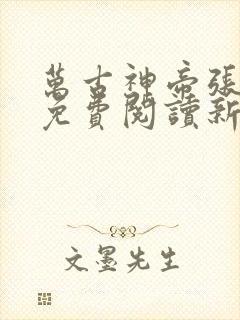 萬古神帝張
免費閱讀新
文墨先生